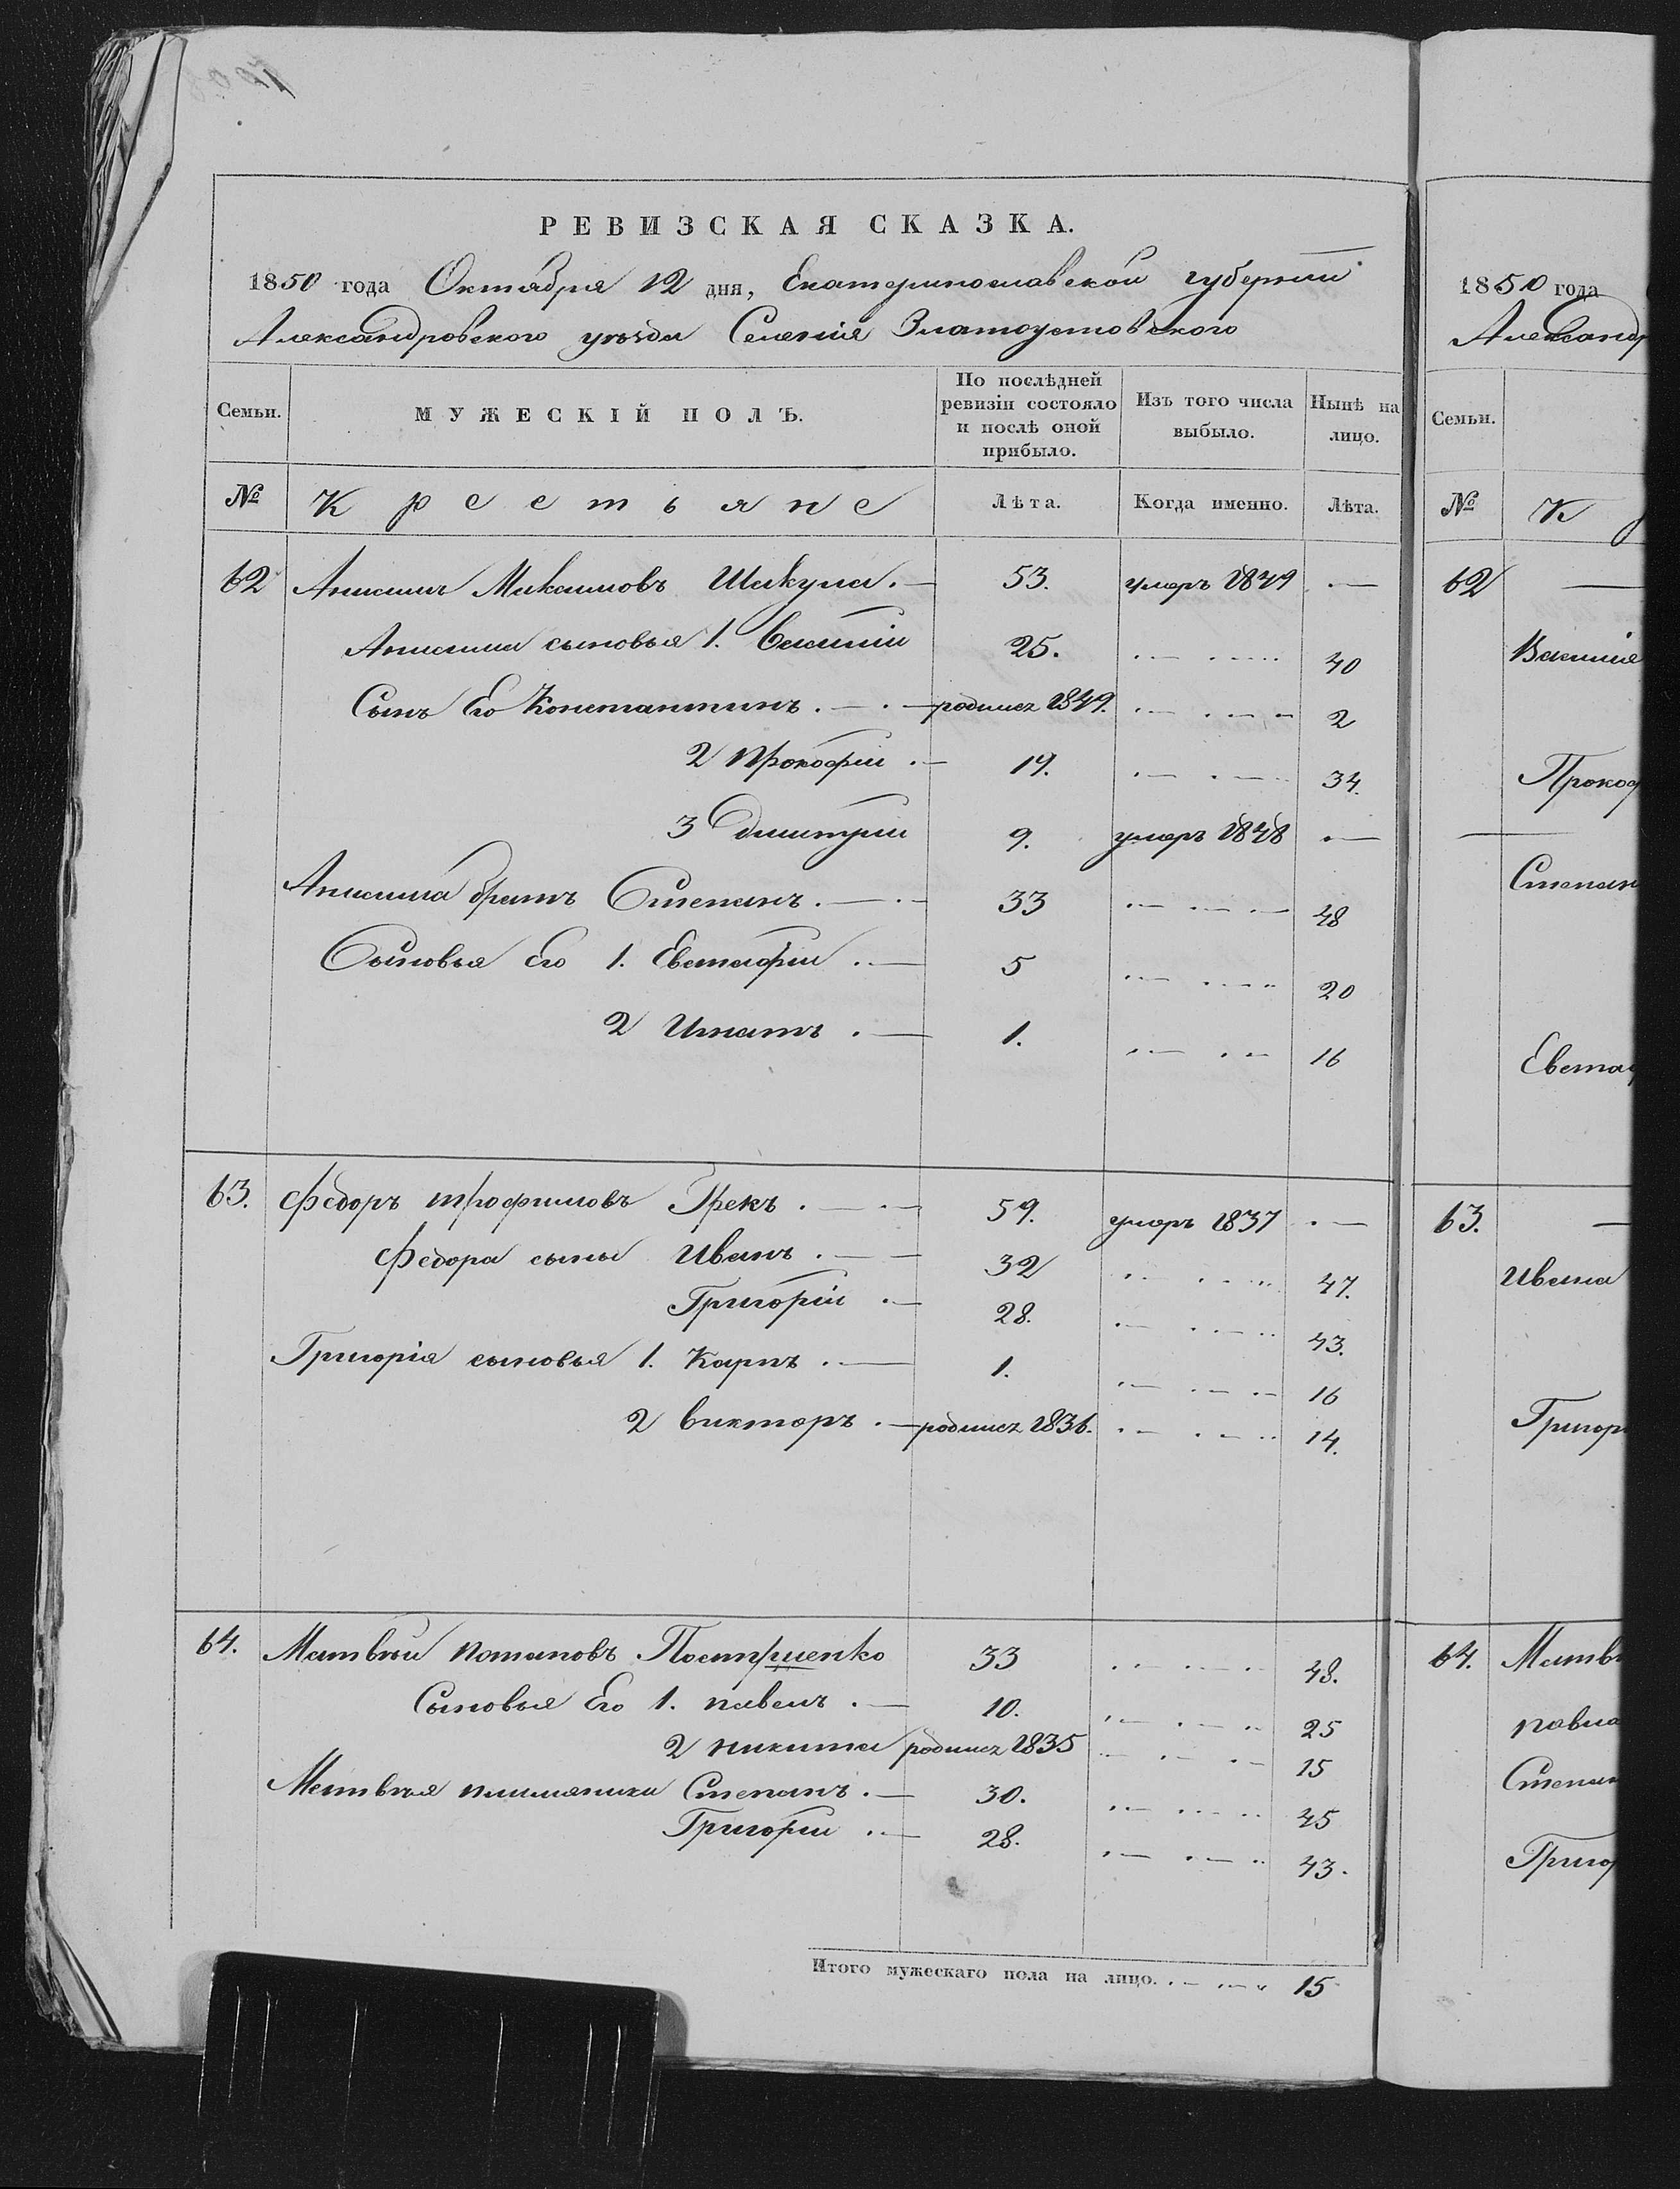 РЕВИЗСКАЯ СКАЗКА.
1850 года Октября 12 дня, Екатеринославской губернии
Александровского уѣзда Селенія Златоустовского
Семьи. МУЖЕСКІЙ ПОЛЪ. По послѣдней ревизіи состояло и послѣ оной прибыло. Изъ того числа выбыло. Нынѣ на лицо.
№ Крестьяне Лѣта. Когда именно. Лѣта.
62 Анисимъ Максимовъ Шакула. 53. умеръ 1849 —
Анисима сыновья 1. Василій 25. 40
Сынъ Его Константинъ. родился 1849. 2
2 Прокофій 19. 34.
3 Дмитрій 9. умеръ 1848 —
Анисима братъ Степанъ. 33 48
Сыновья Его 1. Евстафій 5 20
2 Игнатъ 1. 16
63. Федоръ трофимовъ Грекъ. 59. умеръ 1837 —
Федора сыны Иванъ. 32 47.
Григорій 28. 43.
Григорія сыновья 1. Карпъ. 1. 16
2 викторъ. родился 1836. 14.
64. Матвѣй потаповъ 33 48.
Сыновья Его 1. павелъ. 10. 25
2 никита родился 1835 15
Матвѣя племяники Степанъ. 30. 45
Григорій 28. 43.
Итого мужескаго пола на лицо. 15
1850 года
Александр
Семьи.
№ К
62 —
Василія
Прокоф
Степан
Евстаф
63. —
Ивана
Григор
64. Матвѣ
павла
Степан
Григор